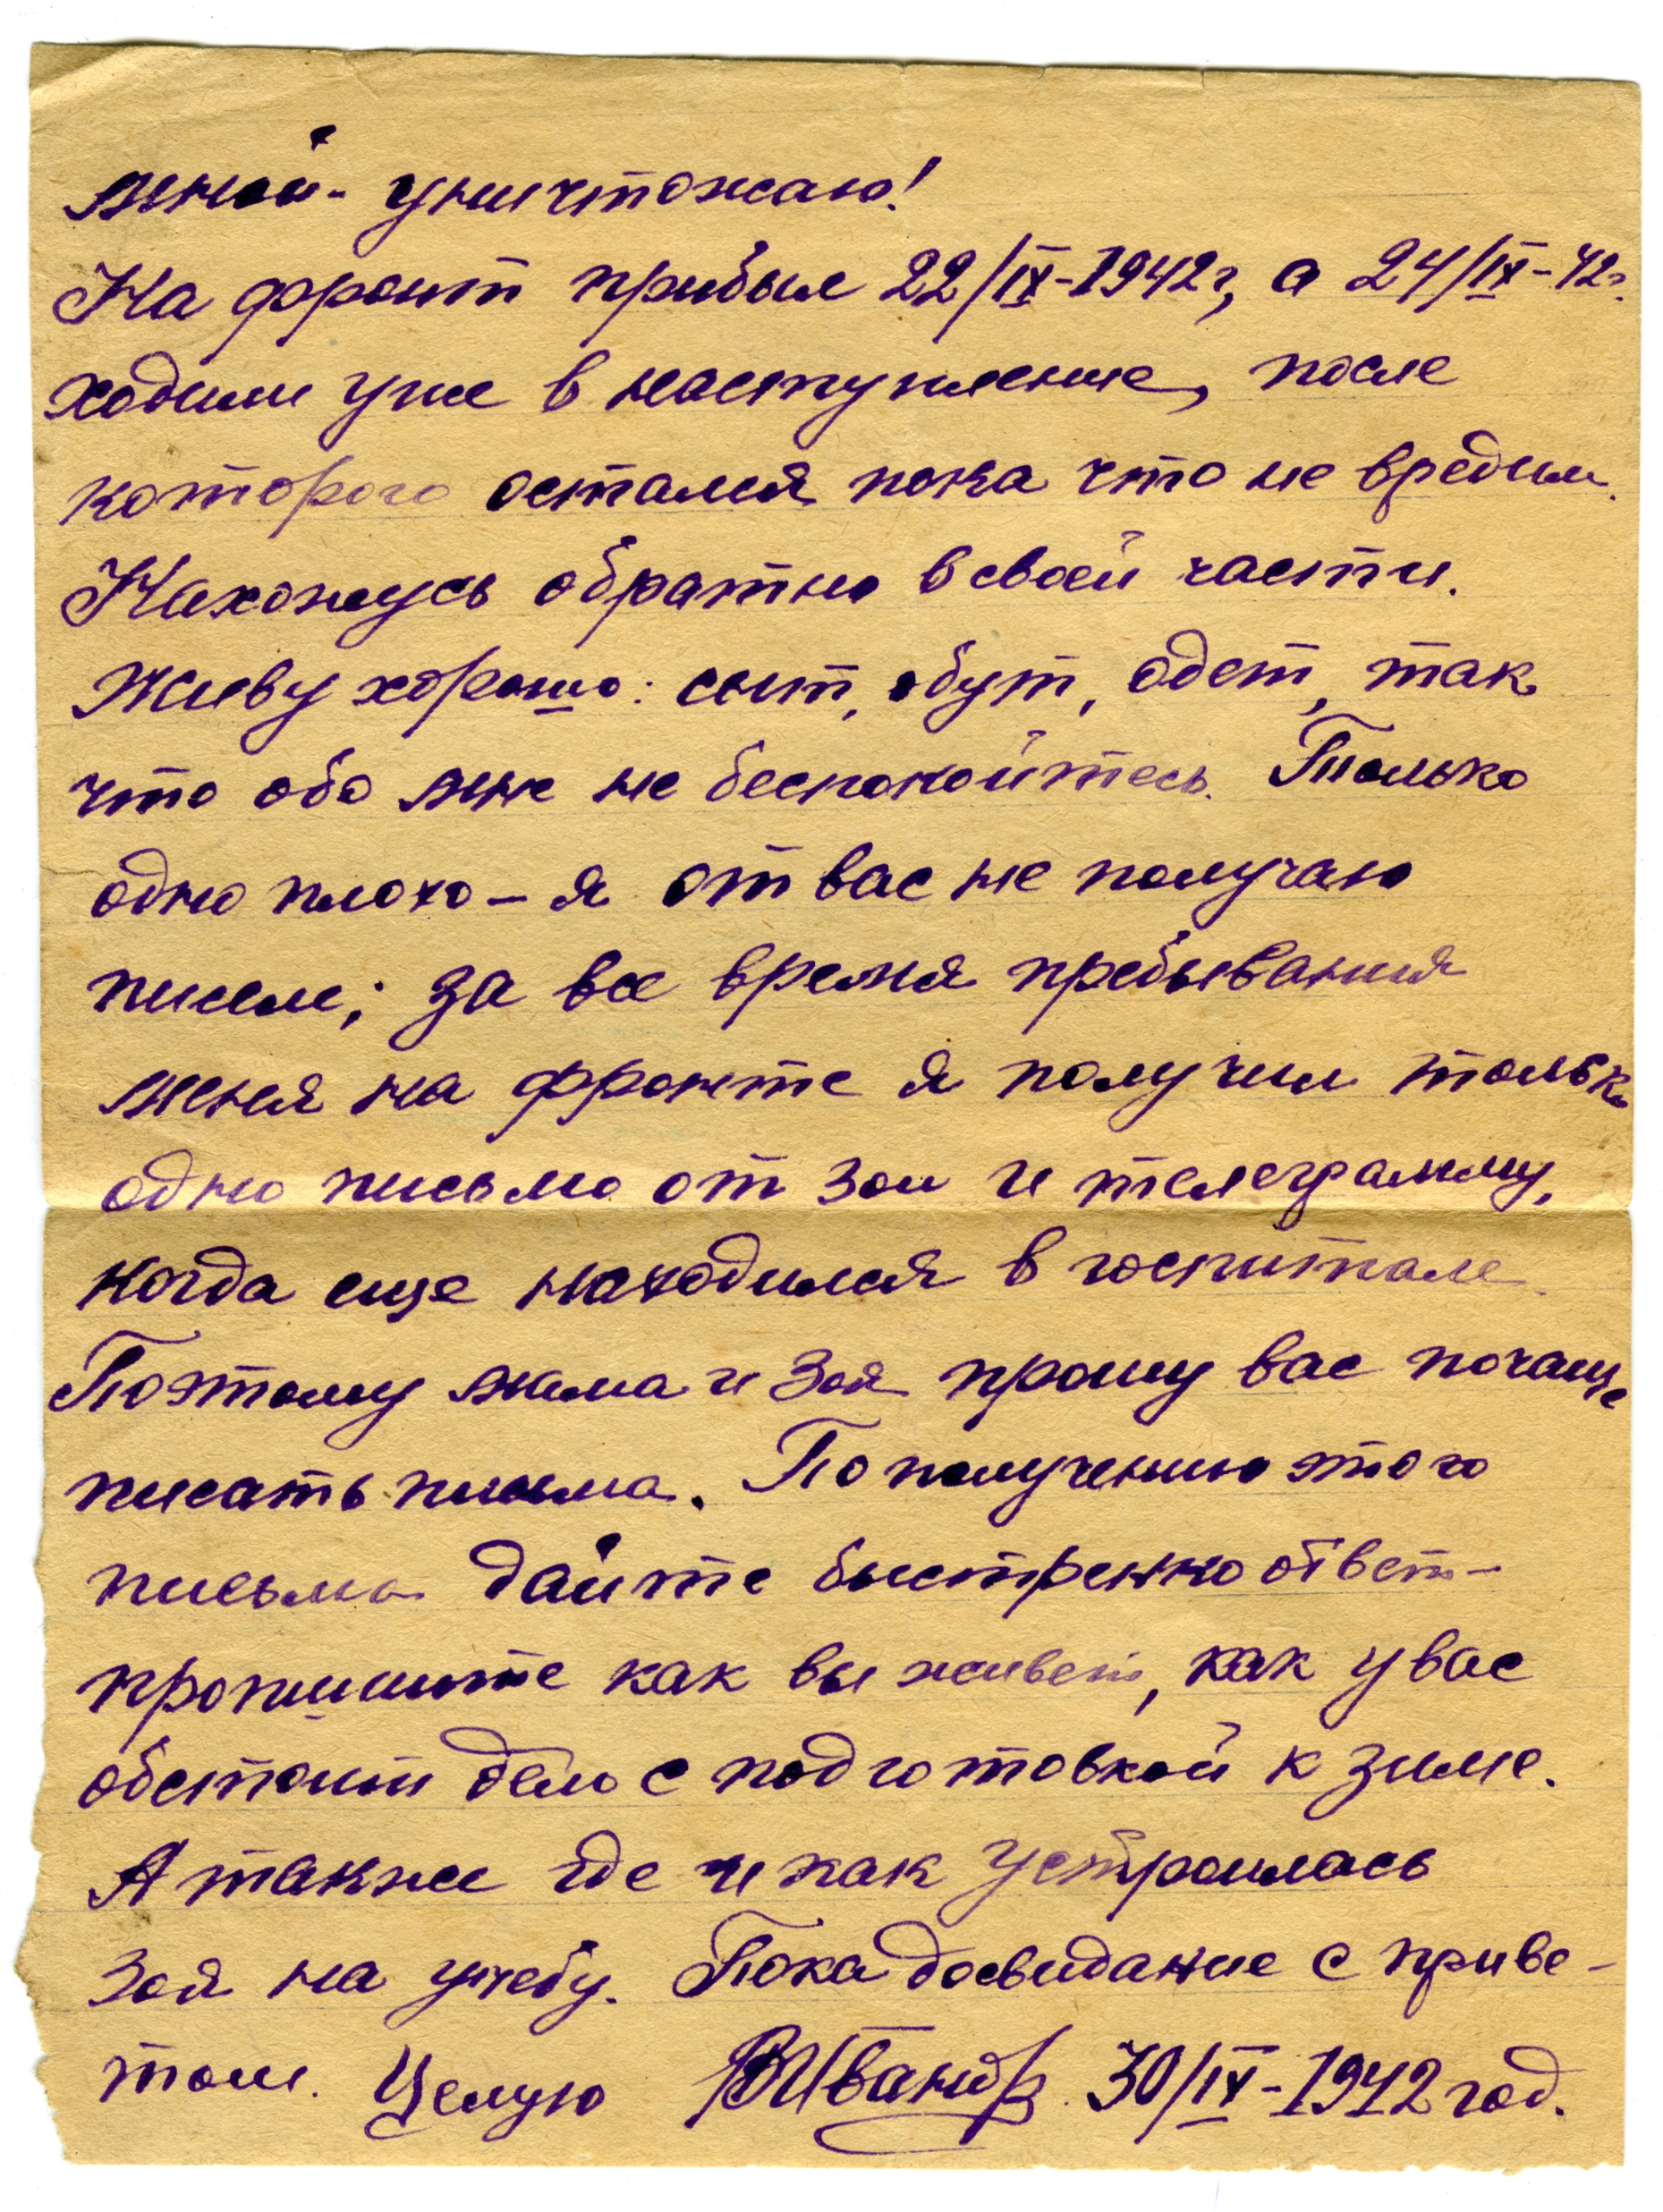 мной - уничтожаю!
На фронт прибыл 22/IX-1942г, а 24/IX-42г.
ходили уже в наступление, после
которого остался пока что не вредим.
Нахожусь обратно в своей части.
Живу хорошо: сыт, обут, одет, так
что обо мне не беспокойтесь. Только
одно плохо – я от вас не получаю
писем; за все время пребывания
меня на фронте я получил только
одно письмо от Зои и телеграмму,
когда еще находился в госпитале.
Поэтому мама и Зоя прошу вас почаще
писать письма. По получению этого
письма дайте быстренно ответ –
пропишите как вы живете, как у вас
обстоит дело с подготовкой к зиме.
А также где и как устроилась
Зоя на учебу. Пока досвидание с приве-
том. Целую ВИванов. 30/IX-1942 год.